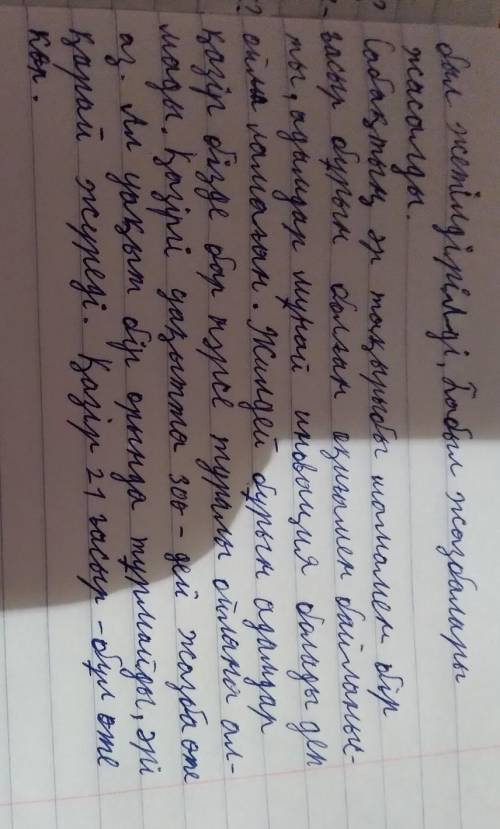 бал жетілдірілді, Табыл жазбалары
жасалды.
Сабақтың әр тақырыбы шамамен бір
ғасыр бұрын болған оқиғамен байланыс-
ты, адамдар мұнай иновация болады деп
ойламаған. Жилдей бұрын адамдар
қазір бізде бар нәрсе туралы ойлана ал-
мады. Қазіргі уақытта 300-дей жазба өте
аз. Ал уақыт бір орында тұрмайды, әрі
қарай жүреді. Қазір 21 ғасыр - бұл өте
көп.